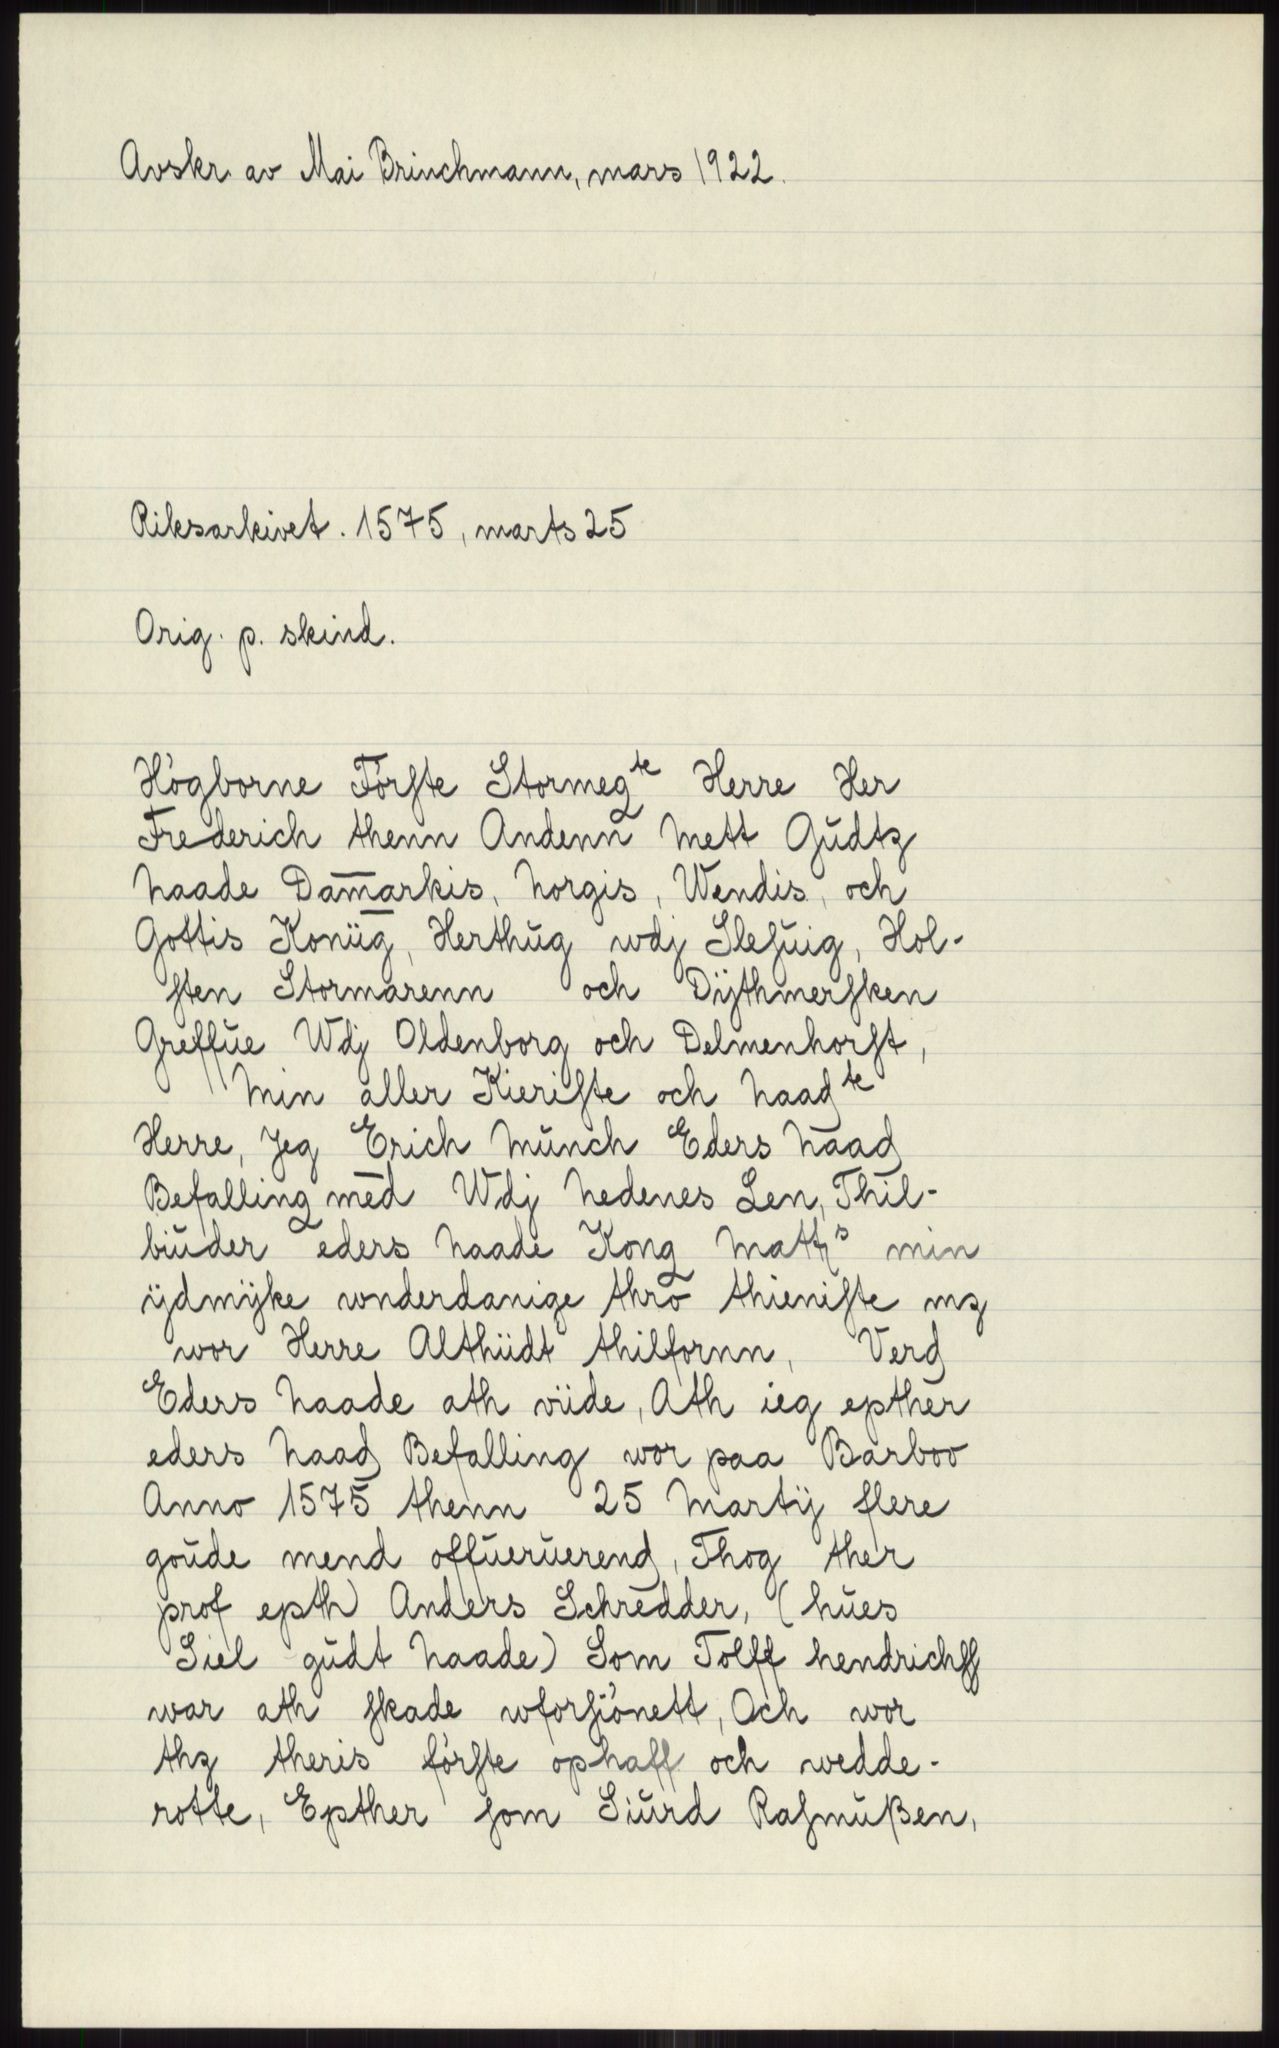 Avskr. av Mai Brinchmann, mars 1922.
Riksarkivet. 1575, marts 25
Orig. p. skind.
Högborne Förſte Stormegte Herre Her
Frederich thenn Andenn Mett Gŭdtz
Naade Dam̅arkis, Norgis, Wendis, och
Gottis Konüg, Herthŭg wdj Sleſŭig, Hol-
ſten Stormarenn och Dÿthmerſken
Greffŭe Wdj Oldenborg och Delmenhorſt,
Min aller Kieriſte och Naadte
Herre, Jeg Erich Mŭnch Eders Naad
Befalling med Wdj Nedenes Len, Thil-
biŭder eders Naade Kong Matts min
ÿdmÿke wnderdanige thro thieniſte mz
wor Herre Althiidt thilfornn, Verd
Eders Naade ath viide, Ath ieg epther
eders Naad Befalling wor paa Barboo
Anno 1575 thenn 25 Martij flere
goŭde mend offŭerŭerend, Thog ther
prof epth Anders Schredder, (hŭes
Siel gŭdt Naade) Som Tolff hendrichſſ
war ath ſkade wforſiönett, Och wor
thz theris förſte ophaff och wedde-
rotte, Epther ſom Siŭrd Raſmŭßen,